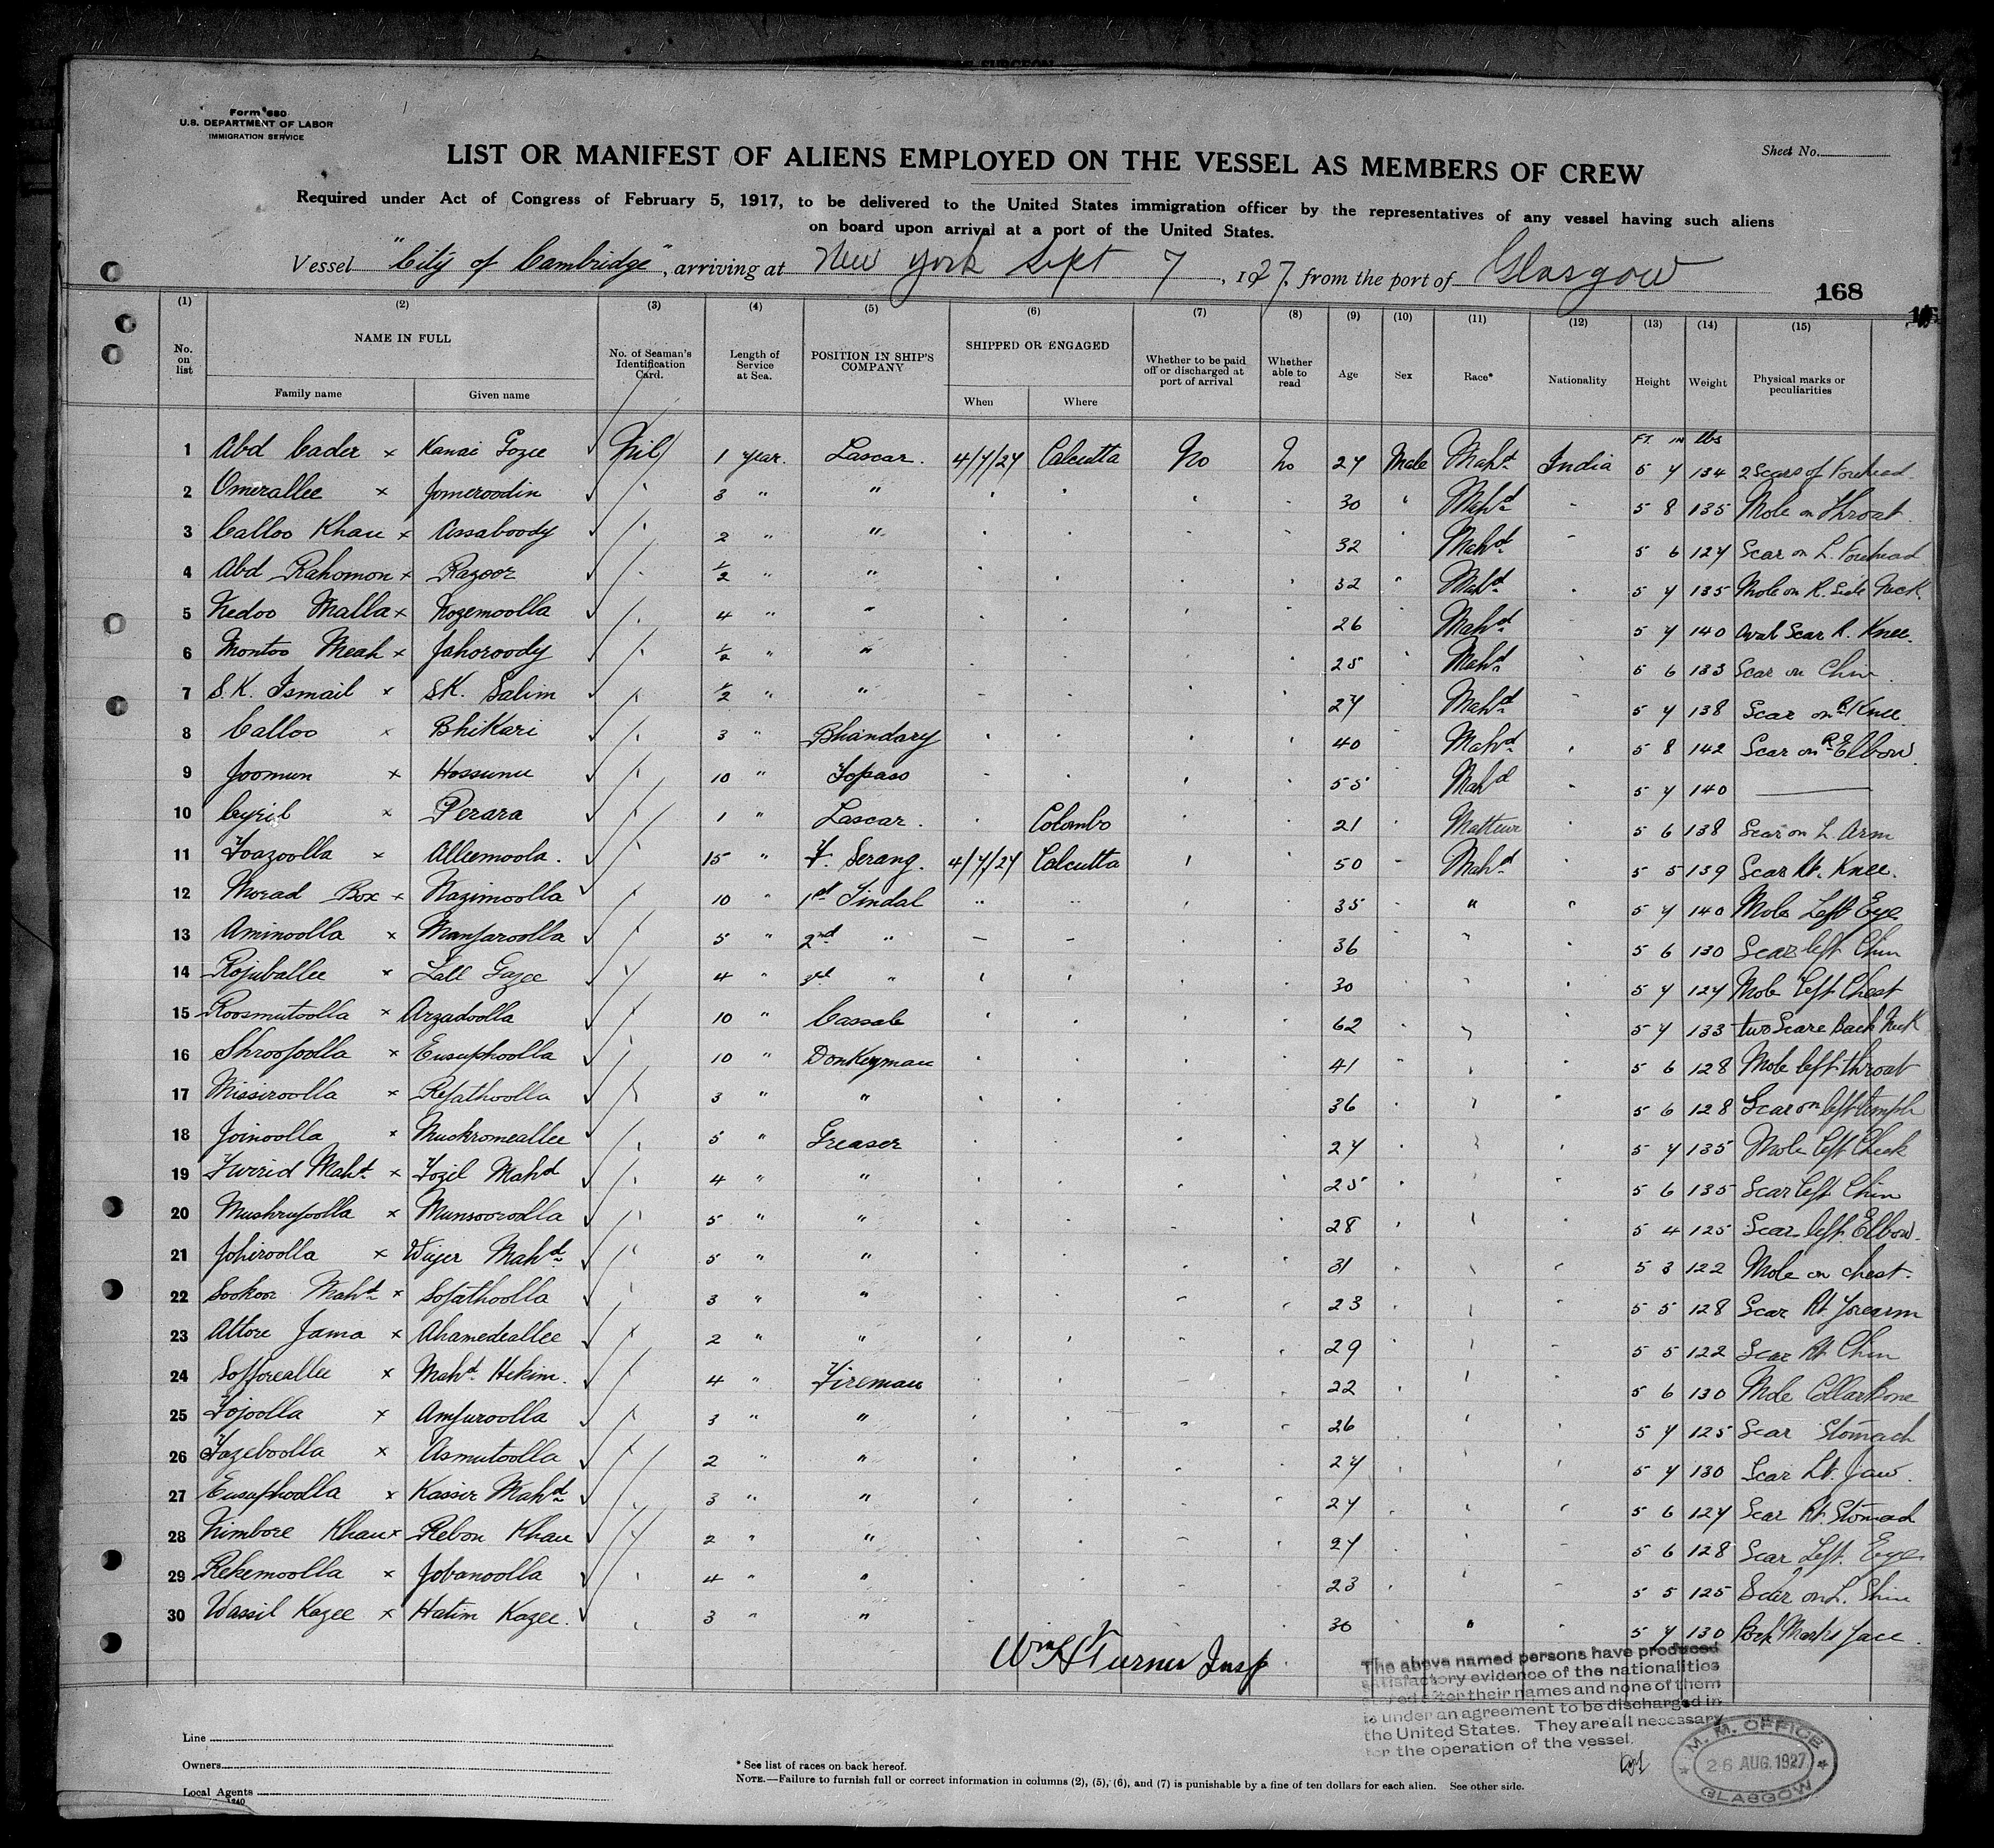 SURGEON
Form 680
U.S. DEPARTMENT OF LABOR
IMMIGRATION SERVICE
Sheet No.
LIST OR MANIFEST OF ALIENS EMPLOYED ON THE VESSEL AS MEMBERS OF CREW
Required under Act of Congress of February 5, 1917, to be delivered to the United States immigration officer by the representatives of any vessel having such aliens
on board upon arrival at a port of the United States.
Vessel "City of Cambridge", arriving at New York Sept 7, 1927, from the port of Glasgow
168
(1) (2) (3) (4) (5) (6) (7) (8) (9) (10) (11) (12) (13) (14) (15)
No. on list NAME IN FULL No. of Seaman's Identification Card. Length of Service at Sea. POSITION IN SHIP'S COMPANY SHIPPED OR ENGAGED Whether to be paid off or discharged at port of arrival Whether able to read Age Sex Race* Nationality Height Weight Physical marks or peculiarities
Family name Given name When Where
Ft. in lbs
1 Abd Cader x Kanai Gozee Nil 1 year. Lascar. 4/7/27 Calcutta No No 27 Male Mahd India 5 7 134 2 Scars of Forehead
2 Omerallee x Jomeroodin 3 " " 30 Mahd 5 8 135 Mole on Throat
3 Calloo Khan x Assaboody 2 " " 32 Mahd 5 6 127 Scar on L. Forehead
4 Abd Rahomon x Razoor 1/2 " " 32 Mahd 5 7 135 Mole on R. Side Neck.
5 Nedoo Malla x Nozemoolla 4 " " 26 Mahd 5 7 140 Oval Scar R. Knee.
6 Montoo Meah x Jahoroody 1/2 " " 25 Mahd 5 6 133 Scar on Chin.
7 S.K. Ismail x S.K. Salim 1/2 " " 27 Mahd 5 7 138 Scar on R Knee
8 Calloo x Bhikari 3 " Bhandary 40 Mahd 5 8 142 Scar on Rt Elbow.
9 Joomun x Hossunu 10 " Topass 55 Mahd 5 7 140
10 Cyril x Perara 1 " Lascar. Colombo 21 5 6 138 Scar on L. Arm
11 Foazoolla x Alleemoola. 15 " F. Serang. 4/7/27 Calcutta 50 Mahd 5 5 139 Scar Rt. Knee.
12 Morad Box x Nazimoolla 10 " 1st Tindal " " 35 " 5 7 140 Mole Left Eye
13 Aminoolla x Manfaroolla 5 " 2nd " 36 " 5 6 130 Scar left Chin
14 Rojuballee x Lall Gazee 4 " 3rd " 30 5 7 127 Mole Left Chest
15 Roosmutoolla x Arzadoolla 10 " Cassab 62 5 7 133 two Scare Back Neck
16 Shroofoolla x Eusuphoolla 10 " Donkeyman 41 5 6 128 Mole left throat
17 Missiroolla x Refathoolla 3 " " 36 5 6 128 Scar on left temple
18 Joinoolla x Muckromeallee 5 " Greaser 27 5 7 135 Mole left Cheek
19 Furrid Mahd x Fozil Mahd 4 " " 25 5 6 135 Scar left Chin
20 Mushrufoolla x Munsooroolla 5 " " 28 5 4 125 Scar left Elbow.
21 Johiroolla x Wujer Mahd 5 " " 31 5 3 122 Mole on chest.
22 Sookoor Mahd x Sofathoolla 3 " " 23 5 5 128 Scar Rt Forearm
23 Attore Jama x Ahamedeallee 2 " " 29 5 5 122 Scar Rt Chin
24 Sofforeallee x Mahd Hekim. 4 " Fireman 22 5 6 130 Mole Collar Bone
25 Fojoolla x Amfuroolla 3 " " 26 5 7 125 Scar Stomach
26 Fazeboolla x Asmutoolla 2 " " 27 5 7 130 Scar Lt. Jaw.
27 Eusuphoolla x Kassir Mahd 3 " " 27 5 6 127 Scar Rt. Stomach
28 Nimbore Khan x Rebon Khan 2 " " 27 5 6 128 Scar Left. Eye
29 Rekemoolla x Jobanoolla 4 " " 23 5 5 125 Scar on L. Shin
30 Wassil Kazee x Hatim Kazee. 3 " " 30 " 5 7 130 Pock Marks face.
Wm Turner Insp
The above named persons have produced
satisfactory evidence of the nationalities
stated after their names and none of them
is under an agreement to be discharged in
the United States. They are all necessary
for the operation of the vessel.
M. M. OFFICE
26 AUG. 1927
GLASGOW
Line
Owners
Local Agents
1240
* See list of races on back hereof.
NOTE.—Failure to furnish full or correct information in columns (2), (5), (6), and (7) is punishable by a fine of ten dollars for each alien. See other side.